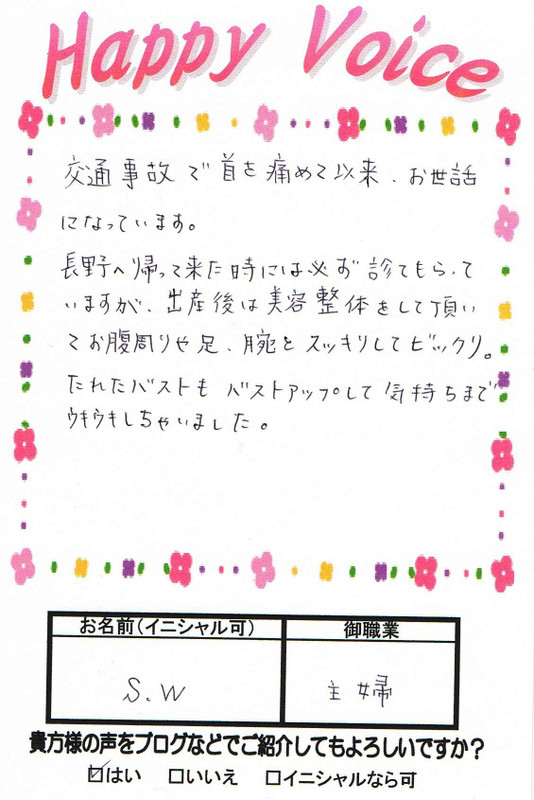 Happy Voice
交通事故で首を痛めて以来、お世話
になっています。
長野へ帰って来た時には必ず診てもらって
いますが、出産後は美容整体をして頂い
てお腹周りや足、腕とスッキリしてビックリ。
たれたバストもバストアップして気持ちまで
ウキウキしちゃいました。
お名前(イニシャル可) 御職業
S.W 主婦
貴方様の声をブログなどでご紹介してもよろしいですか?
☑はい □いいえ □イニシャルなら可